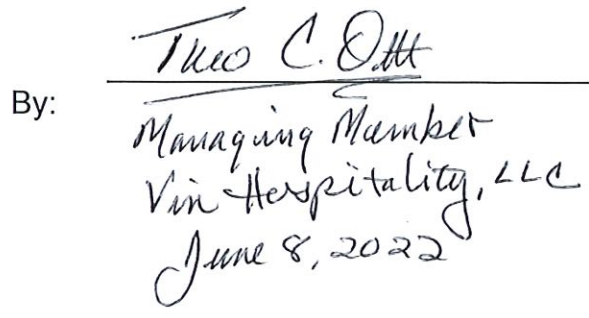 Theo C. Ott
By:
Managing Member
Vin Hospitality, LLC
June 8, 2022